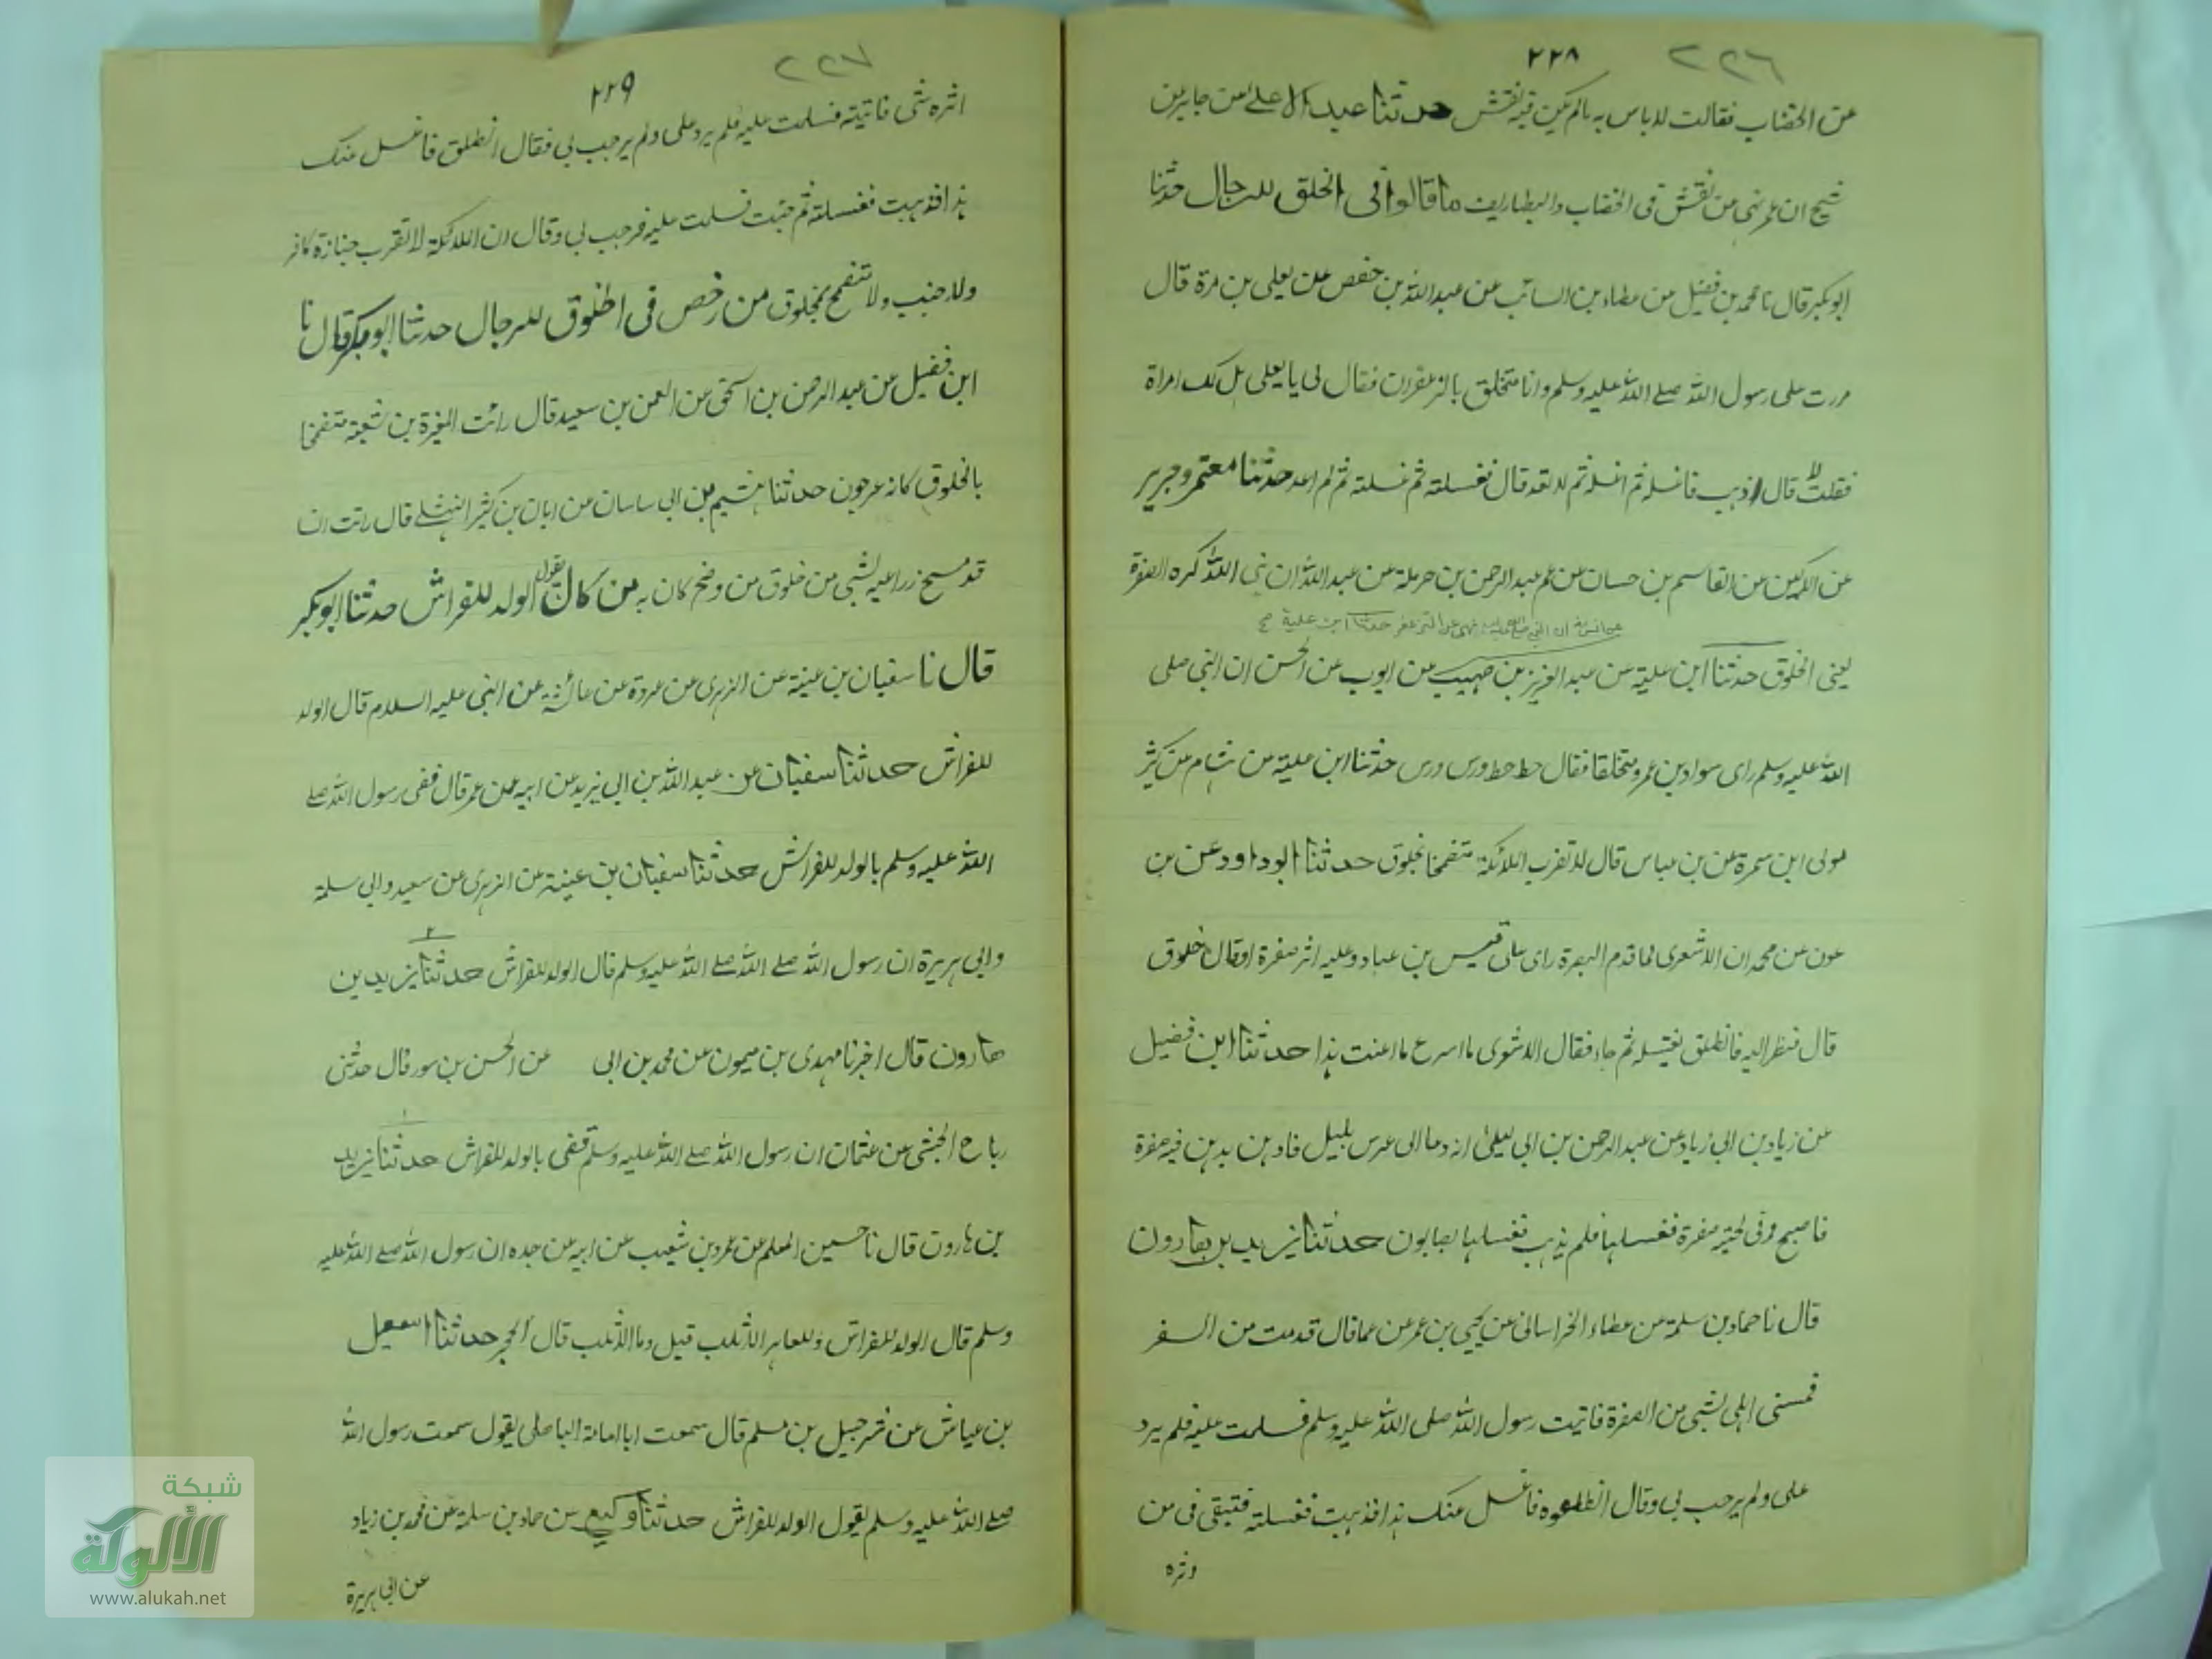 ٢٢٦
٢٢٨
عن الخضاب فقالت لا باس به مالم يكن فيه نقش حدثنا عبد الاعلى عن جابر بن
شيخ ان عمر نهى عن نقش فى الخضاب والبطاريف ما قالوا فى الخلق للرجال حدثنا
ابو بكر قال نا محمد بن فضيل عن عطاء بن السائب عن عبد الله بن حفص عن يعلى بن مرة قال
مررت على رسول الله صلى الله عليه وسلم وانا متخلق بالزعفران فقال لى يا يعلى هل لك امراة
فقلت لا قال اذهب فاغسله ثم اغسله ثم لا تعد قال فغسلته ثم غسلته ثم لم اعد حدثنا معتمر وجرير
عن الركين عن القاسم بن حسان عن عمه عبد الرحمن بن حرملة عن عبد الله ان نبى الله كره الصفرة
عن انس ان النبى صلى الله عليه نهى عن التزعفر حدثنا ابن علية صح
يعنى الخلوق حدثنا ابن علية عن عبد العزيز بن صهيب عن ايوب عن الحسن ان النبى صلى
الله عليه وسلم راى سواد بن عمرو متخلقا فقال حط حط ورس ورس حدثنا ابن علية عن هشام عن كثير
مولى ابن سمرة عن بن عباس قال لا تقرب الملائكة متضمخا بخلوق حدثنا ابو داود عن بن
عون عن محمد ان الاشعرى لما قدم البصرة راى على قيس بن عباد وعليه اثر صفرة اوقال خلوق
قال فنظر اليه فانطلق فغسله ثم جاء فقال الاشعرى ما اسرع ما اعنت هذا حدثنا ابن فضيل
عن زياد بن ابى زياد عن عبد الرحمن بن ابى ليلى انه دعا الى عرس بليل فادهن بدهن فيه صفرة
فاصبح وفى لحيته صفرة فغسلها فلم يذهب فغسلها بصابون حدثنا يزيد بن هارون
قال نا حماد بن سلمة عن عطاء الخراسانى عن يحيى بن عمر عن عمار قال قدمت من السفر
فمسنى اهلى بشى من الصفرة فاتيت رسول الله صلى الله عليه وسلم فسلمت عليه فلم يرد
على ولم يرحب بى وقال انطلق فاغسل عنك هذا فذهبت فغسلته فتبقى فى من
٢٢٧
٢٢٩
اثره شى فاتيته فسلمت عليه فلم يرد على ولم يرحب بى فقال انطلق فاغسل عنك
هذا فذهبت فغسلته ثم جئت فسلمت عليه فرحب بى وقال ان الملائكة لا تقرب جنازة كافر
ولا جنب ولا متضمخ بخلوق من رخص فى الخلوق للرجال حدثنا ابو بكر قال نا
ابن فضيل عن عبد الرحمن بن اسحق عن النعمن بن سعيد قال رائت المغيرة بن شعبة متضمخا
بالخلوق كانه عرجون حدثنا هشيم بن ابى ساسان عن ابان بن كثير النهشلى قال رائت ان
قد مسح زراعيه بشى من خلوق من وضح كان به من كان يقول الولد للفراش حدثنا ابو بكر
قال نا سفيان بن عينة عن الزهرى عن عروة عن عائشة عن النبى عليه السلام قال الولد
للفراش حدثنا سفيان عن عبد الله بن ابى يزيد عن ابيه عن عمر قال قضى رسول الله صلى
الله عليه وسلم بالولد للفراش حدثنا سفيان بن عينة عن الزهرى عن سعيد وابى سلمة
وابى هريرة ان رسول الله صلى الله صلى الله عليه وسلم قال الولد للفراش حدثنا يزيد بن
هارون قال اخبرنا مهدى بن ميمون عن محمد بن ابى عن الحسن بن سور قال حدثنى
رباح الحبشى عن عثمان ان رسول الله صلى الله عليه وسلم قضى بالولد للفراش حدثنا يزيد
بن هارون قال نا حسين المعلم عن عمرو بن شعيب عن ابيه عن جده ان رسول الله صلى الله عليه
وسلم قال الولد للفراش وللعاهر الاثلب قيل وما الاثلب قال الحجر حدثنا اسمعيل
بن عياش عن شرحبيل بن مسلم قال سمعت ابا امامة الباهلى يقول سمعت رسول الله
صلى الله عليه وسلم يقول الولد للفراش حدثنا وكيع عن حماد بن سلمة عن محمد بن زياد
عن ابى هريرة
شبكة
الألوكة
www.alukah.net